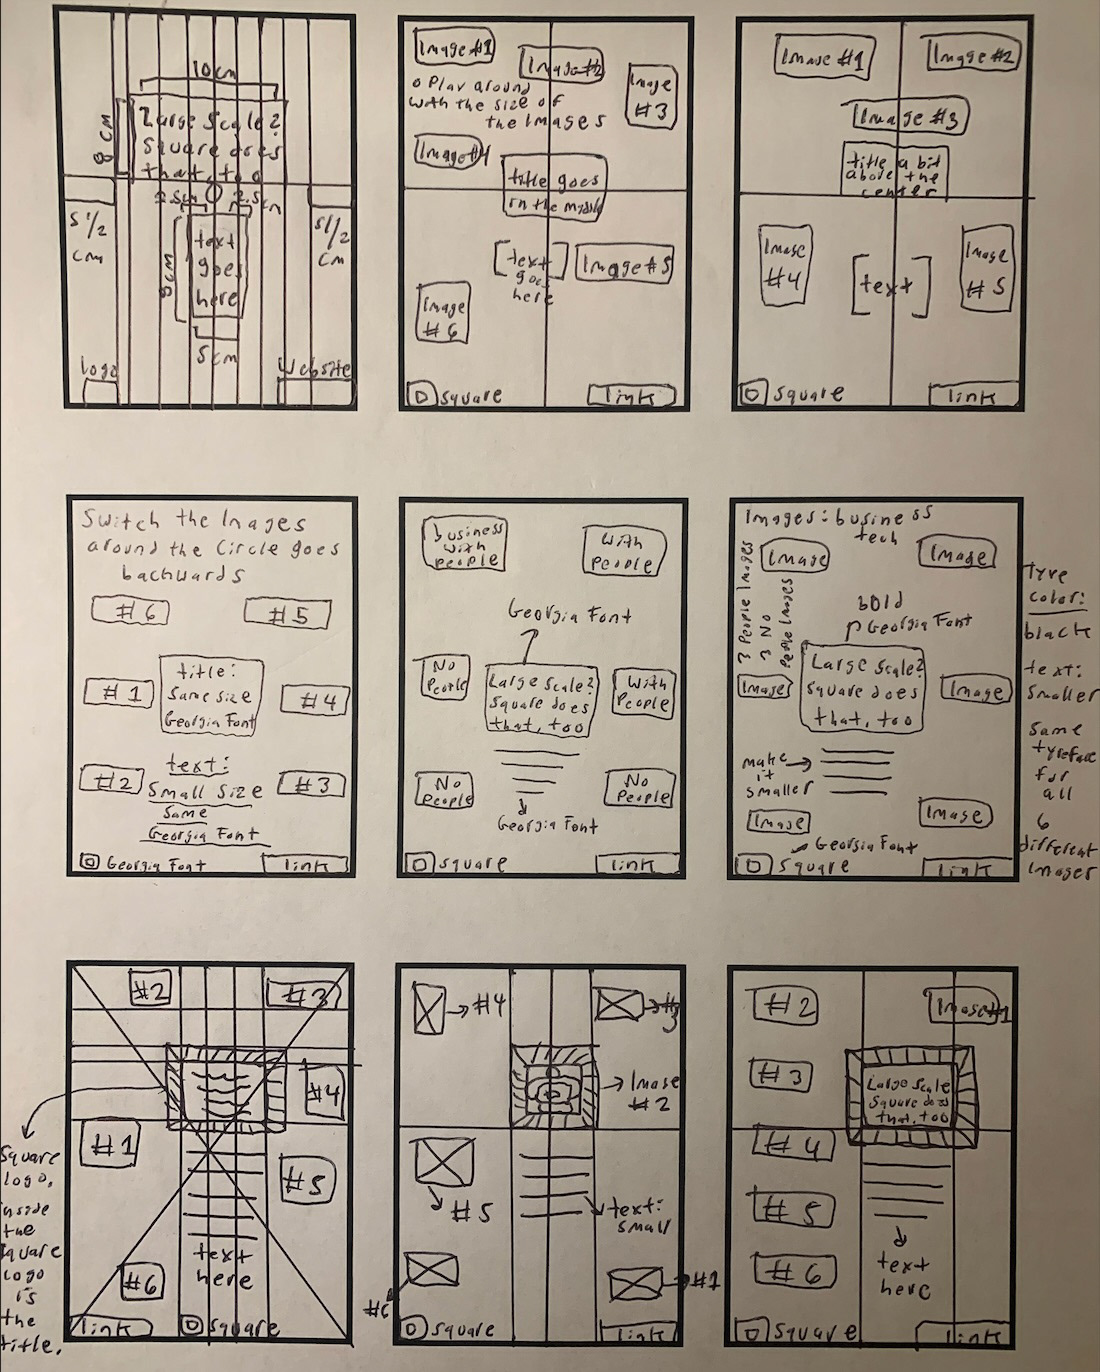 10cm
8cm
Large Scale?
Square does
that, too
2.5cm
5 1/2
cm
5 1/2
cm
9cm
text
goes
here
5cm
logo
Website
Image #1
Image #2
Image
#3
o Play around
with the size of
the Images
Image #4
title goes
in the middle
[text
goes
here]
Image #5
Image
#6
square
link
Image #1
Image #2
Image #3
title a bit
above the
center
Image
#4
[text]
Image
#5
square
link
Switch the Images
around the Circle goes
backwards
#6
#5
#1
title:
Same size
Georgia Font
#4
#2
text:
Small Size
Same
Georgia Font
#3
Georgia Font
link
business
with
people
With
People
Georgia Font
No
People
Large Scale?
Square does
that, too
With
People
No
People
Georgia Font
No
People
square
link
Images: business
tech
3 People Images
3 No
People Images
Image
Image
bold
Georgia Font
Image
Large Scale?
Square does
that, too
Image
make
it
smaller
Image
Image
Georgia Font
square
link
type
color:
black
text:
smaller
same
typeface
for
all
6
different
Images
#2
#3
#4
#1
#5
text
here
#6
link
square
Square
logo.
inside
the
square
logo
is
the
title.
#4
#3
Image
#2
#5
text:
small
#6
#1
square
link
#2
Image #1
#3
Large Scale
Square does
that, too
#4
#5
text
here
#6
square
link